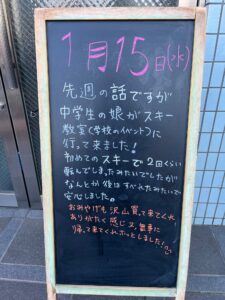 1月15日(水)
先週の話ですが
中学生の娘がスキー
教室(学校のイベント)に
行って来ました!
初めてのスキーで2回くらい
転んでしまったみたいでしたが
なんとか後はすべれたみたいで
安心しました。
おみやげも沢山買って来てくれ
ありがたく感じ、又、無事に
帰って来てくれホッとしました!